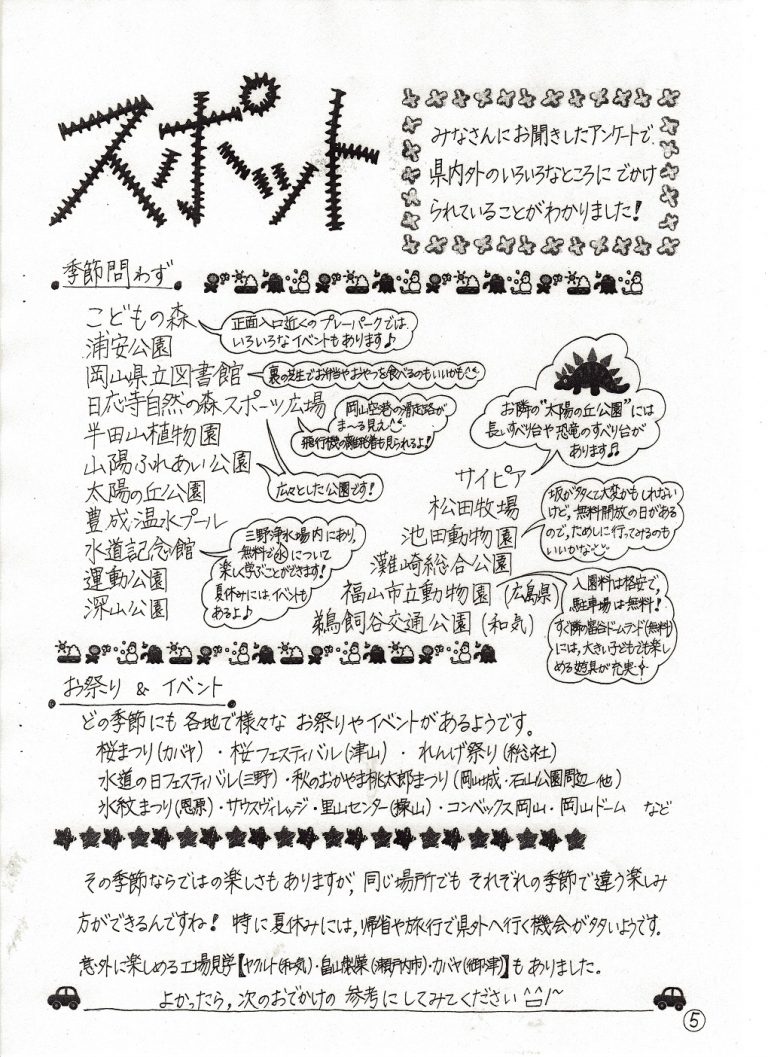 スポット
みなさんにお聞きしたアンケートで、
県内外のいろいろなところに でかけ
られていることがわかりました！
季節問わず
こどもの森
正面入口近くの プレーパークでは、
いろいろな イベントもあります♪
浦安公園
岡山県立図書館
裏の芝生でお弁当やおやつを食べるのもいいかも
日応寺自然の森スポーツ広場
岡山空港の滑走路が
ま〜る見え
飛行機の離発着も見られるよ！
半田山植物園
山陽ふれあい公園
広々とした公園です！
太陽の丘公園
豊成温水プール
水道記念館
三野浄水場内にあり、
無料で水について
楽しく学ぶことができます！
夏休みには イベントも
あるよ♪
運動公園
深山公園
お隣の“太陽の丘公園”には
長いすべり台や恐竜のすべり台が
あります♫
サイピア
松田牧場
池田動物園
坂が多くて大変かもしれない
けど、無料開放の日がある
ので、ためしに行ってみるのも
いいかな
灘崎総合公園
福山市立動物園 (広島県)
入園料は格安で、
駐車場は無料！
すぐ隣の富谷ドームランド(無料)
には、大きい子どもでも楽し
める遊具が充実
鵜飼谷交通公園 (和気)
お祭り & イベント
どの季節にも 各地で様々な お祭りやイベントがあるようです。
桜まつり(カバヤ)・桜フェスティバル(津山)・れんげ祭り(総社)
水道の日フェスティバル(三野)・秋のおかやま桃太郎まつり(岡山城・石山公園周辺 他)
氷紋まつり(恩原)・サウスヴィレッジ・里山センター(操山)・コンベックス岡山・岡山ドーム など
その季節ならではの楽しさもありますが、同じ場所でも それぞれの季節で違う楽しみ
方ができるんですね！ 特に夏休みには、帰省や旅行で県外へ行く機会が多いようです。
意外に楽しめる工場見学【ヤクルト(和気)・畠山製菓(瀬戸内市)・カバヤ(御津)】もありました。
よかったら、次のおでかけの 参考にしてみてください^^)/~
5